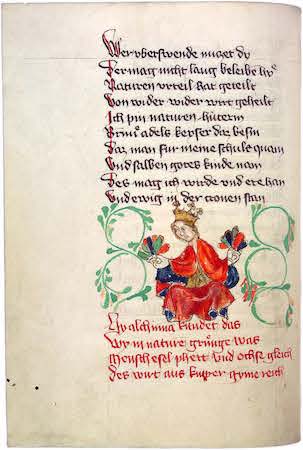 Wer oberswende nutzet do
Der mag nicht lang beleibe
Naturen urteil hat geteilt
Von wider wider wirt geheilt
Ich pin naturen hüterin
adels keyser daz besin
Daz man für meine schult quam
Und salben gotes kinde nam
Des mag ich wirde und ere han
Und ewig in der cronen stan
Alchimia kündet das
Wy in nature grünge was
Mensch esel phert und ochs gleich
Des wirt aus kupper gyme reich